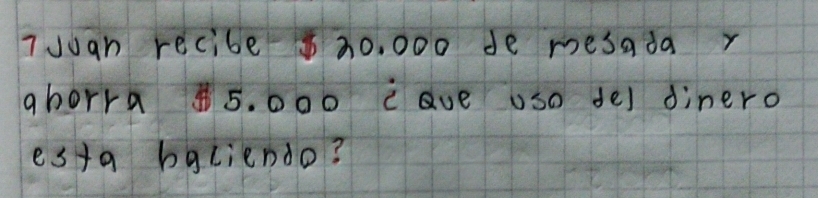 7 Juan recibe $ 20.000 de mesada y
ahorra $ 5.000 ¿ Que uso del dinero
esta haciendo?